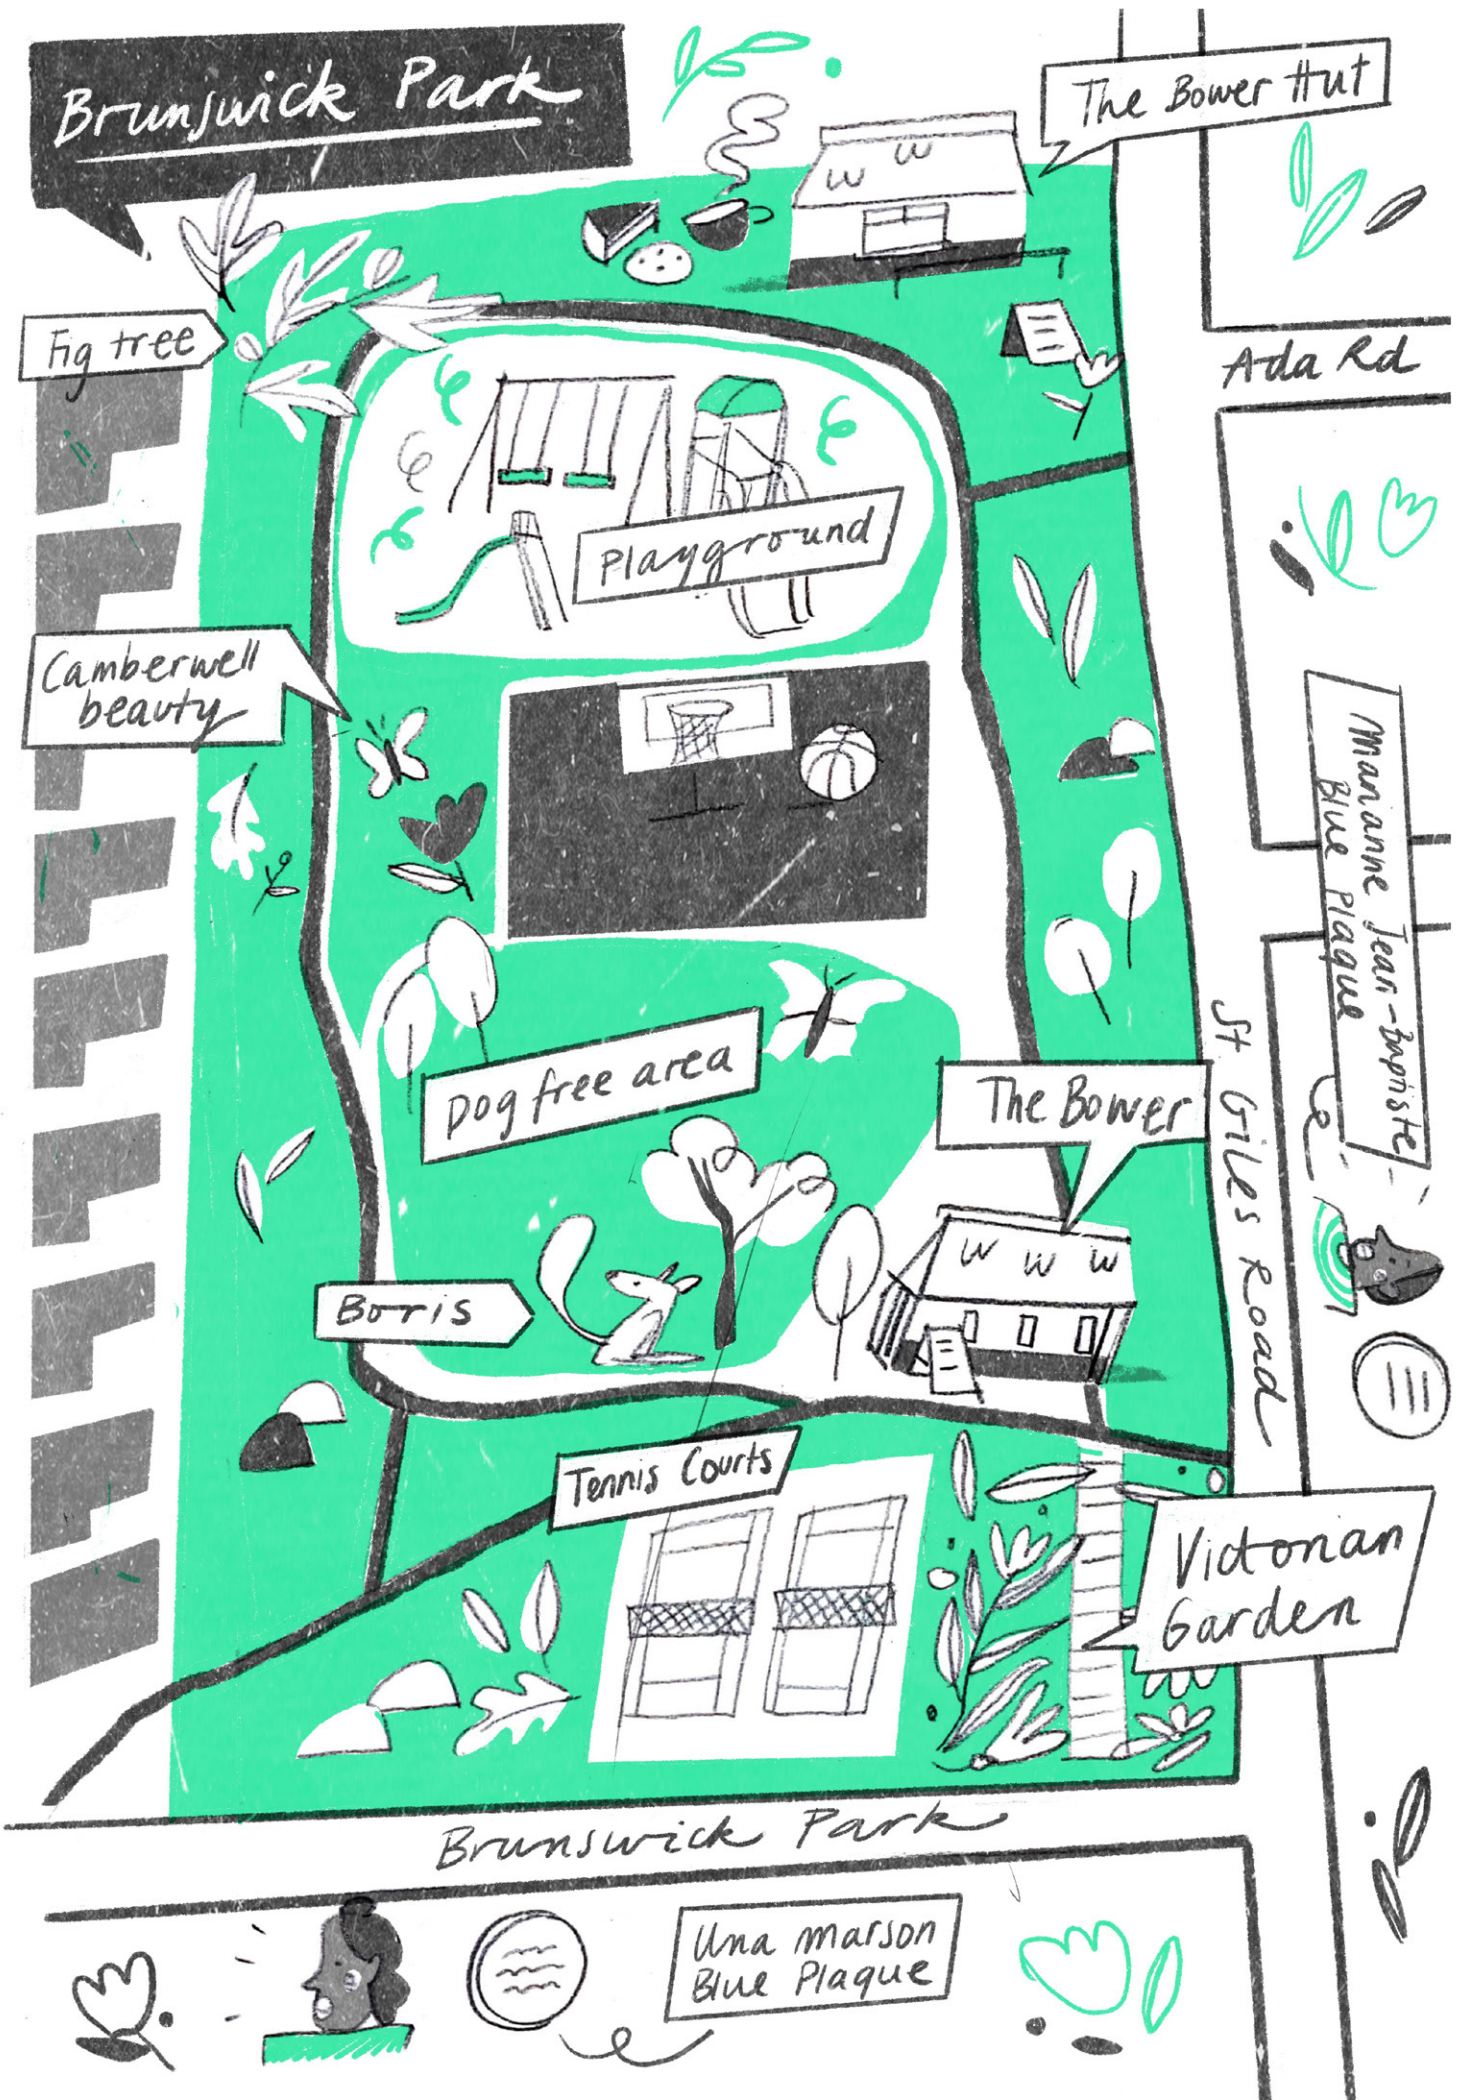 Brunswick Park
The Bower Hut
Fig tree
Ada Rd
Playground
Camberwell
beauty
Marianne Jean-Baptiste
Blue Plaque
Dog free area
The Bower
St. Giles Road
Boris
Tennis Courts
Victorian
Garden
Brunswick Park
Una Marson
Blue Plaque